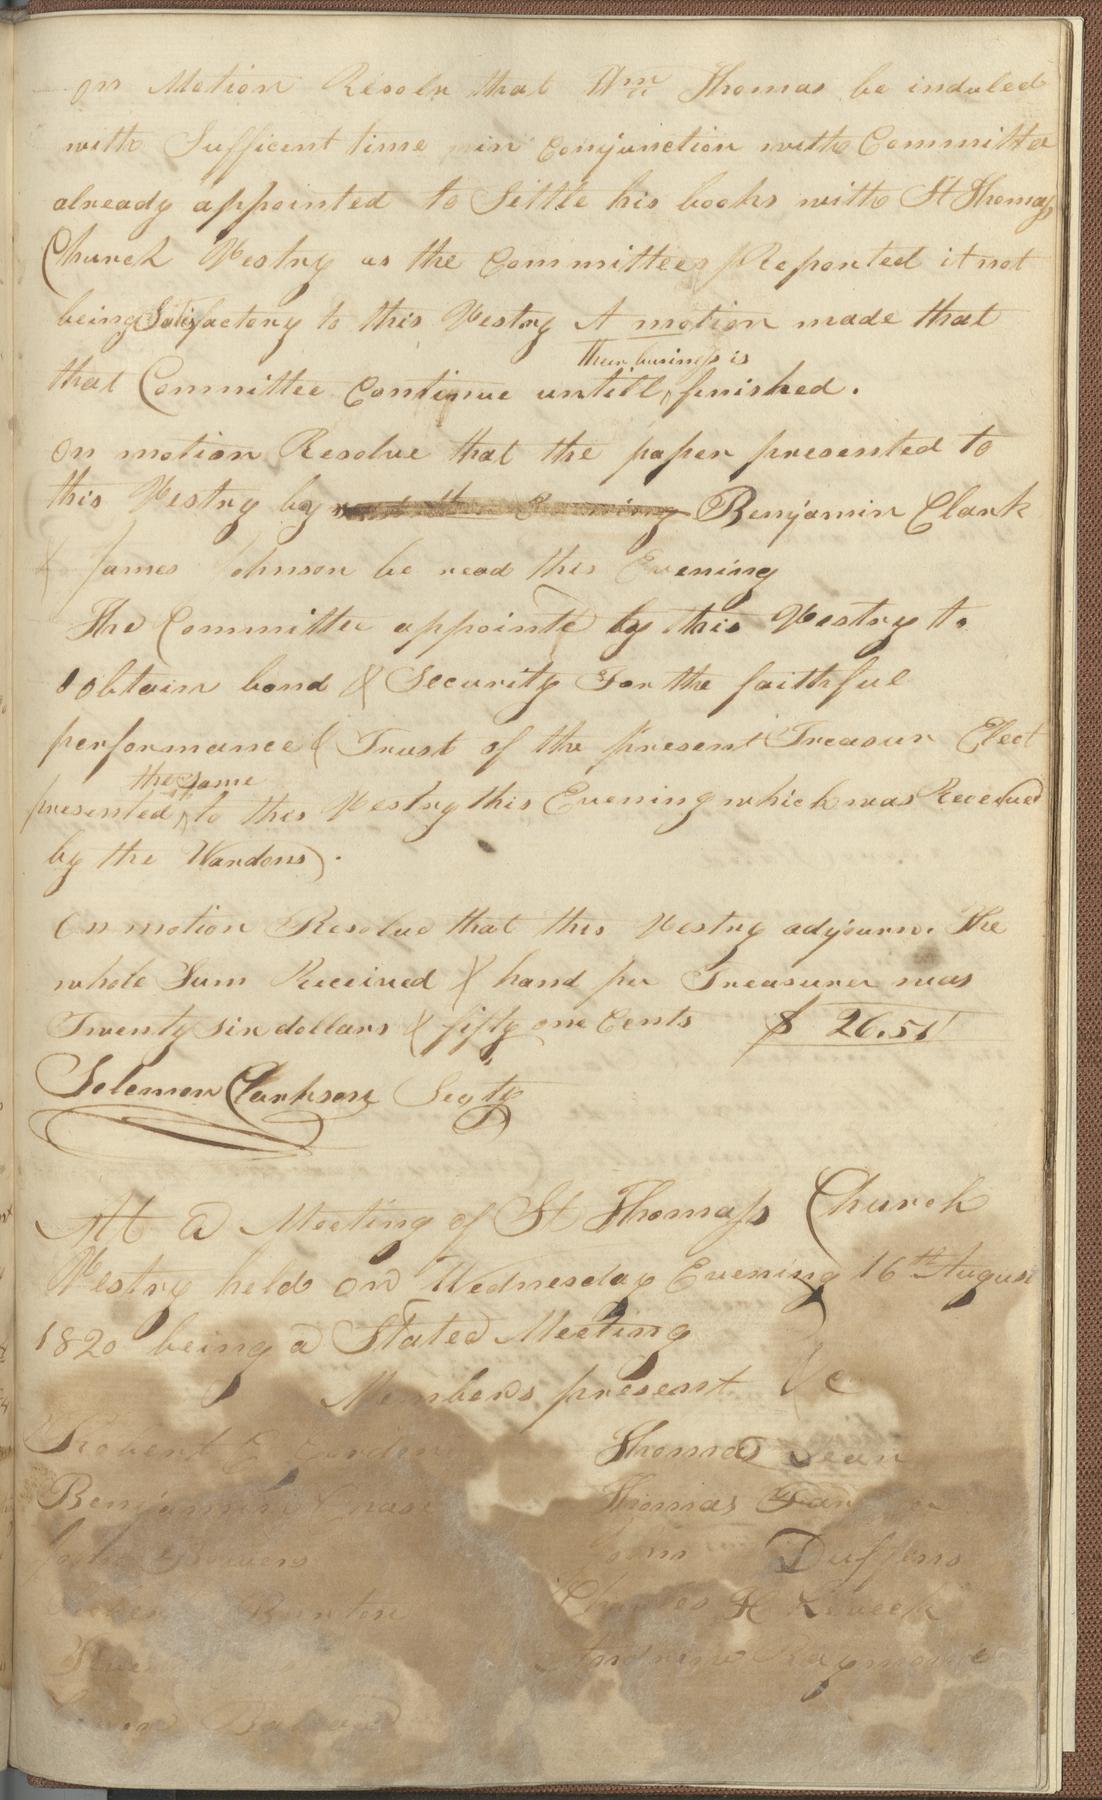 on Motion Resolv that Wm Thomas be induled
with Sufficent time in Conjunction with Committe
already appointed to Settle his books with St Thomass
Church Vestry as the Committees Reported it not
being Satisfactory to this Vestry A motion made that
their business is
that Committee Continue untill finished.
On motion Resolve that the paper presented to
this Vestry by Benjamin Clark
& James Johnson be read this Evening
The Committee appointed by this Vestry to
obtain bond & Security For the faithful
performance & Trust of the present Treasur Elect
the Same
presented to this Vestry this Evening which was Received
by the Wardens.
On motion Resolve that this Vestry adjourn. The
whole Sum Received & hand per Treasurer was
Twenty six dollars & fifty one Cents $ 26.51
Solomon Clarkson Secty
At a Meeting of St Thomass Church
Vestry held on Wednesday Evening 16th August
1820 being a Stated Meeting
Members present &c
Robert C Gordon Thomas Dean
Benjamin Chase Thomas
Bowers John Duffens
Burton Charles H Leveck
Andrew Raymond